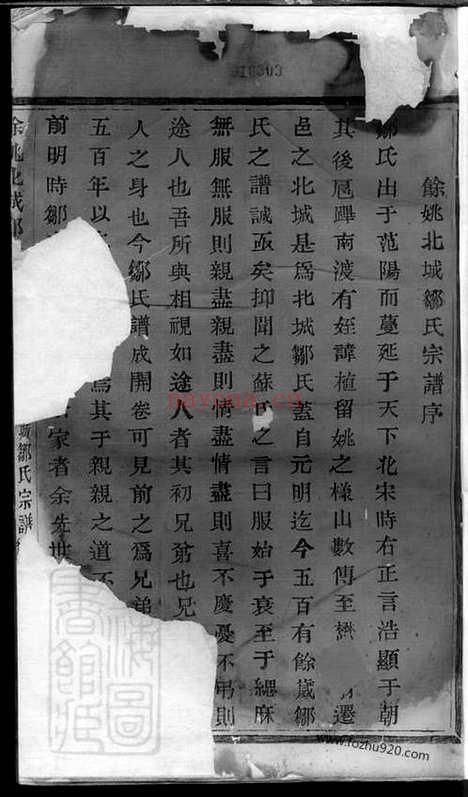 餘姚北城鄒氏宗譜序
鄒氏出于范陽而蔓延于天下北宋時右正言浩顯于朝
其後扈蹕南渡有姪諱植留姚之樣山數傳至
遷
邑之北城是爲北城鄒氏蓋自元明迄今五百有餘歲鄒
氏之譜誠亟矣抑聞之蘇氏之言曰服始于衰至于緦麻
無服無服則親盡親盡則情盡情盡則喜不慶憂不弔則
途人也吾所與相視如途人者其初兄弟也兄
人之身也今鄒氏譜成開卷可見前之爲兄弟
五百年以
爲其于親親之道不
前明時鄒
家者余先世
余姚北城
城鄒氏宗譜
910303
nayona.cn
圖
書館
www.fozhu920.com